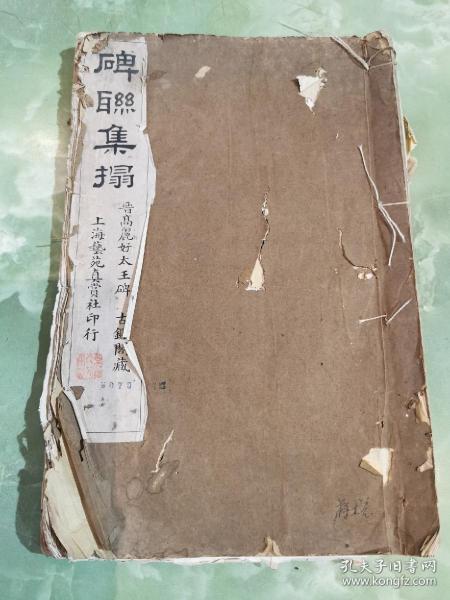 碑聯集搨
晋高麗好太王碑
古鑑閣藏
上海藝苑真賞社印行
孔夫子旧书网
www.kongfz.com